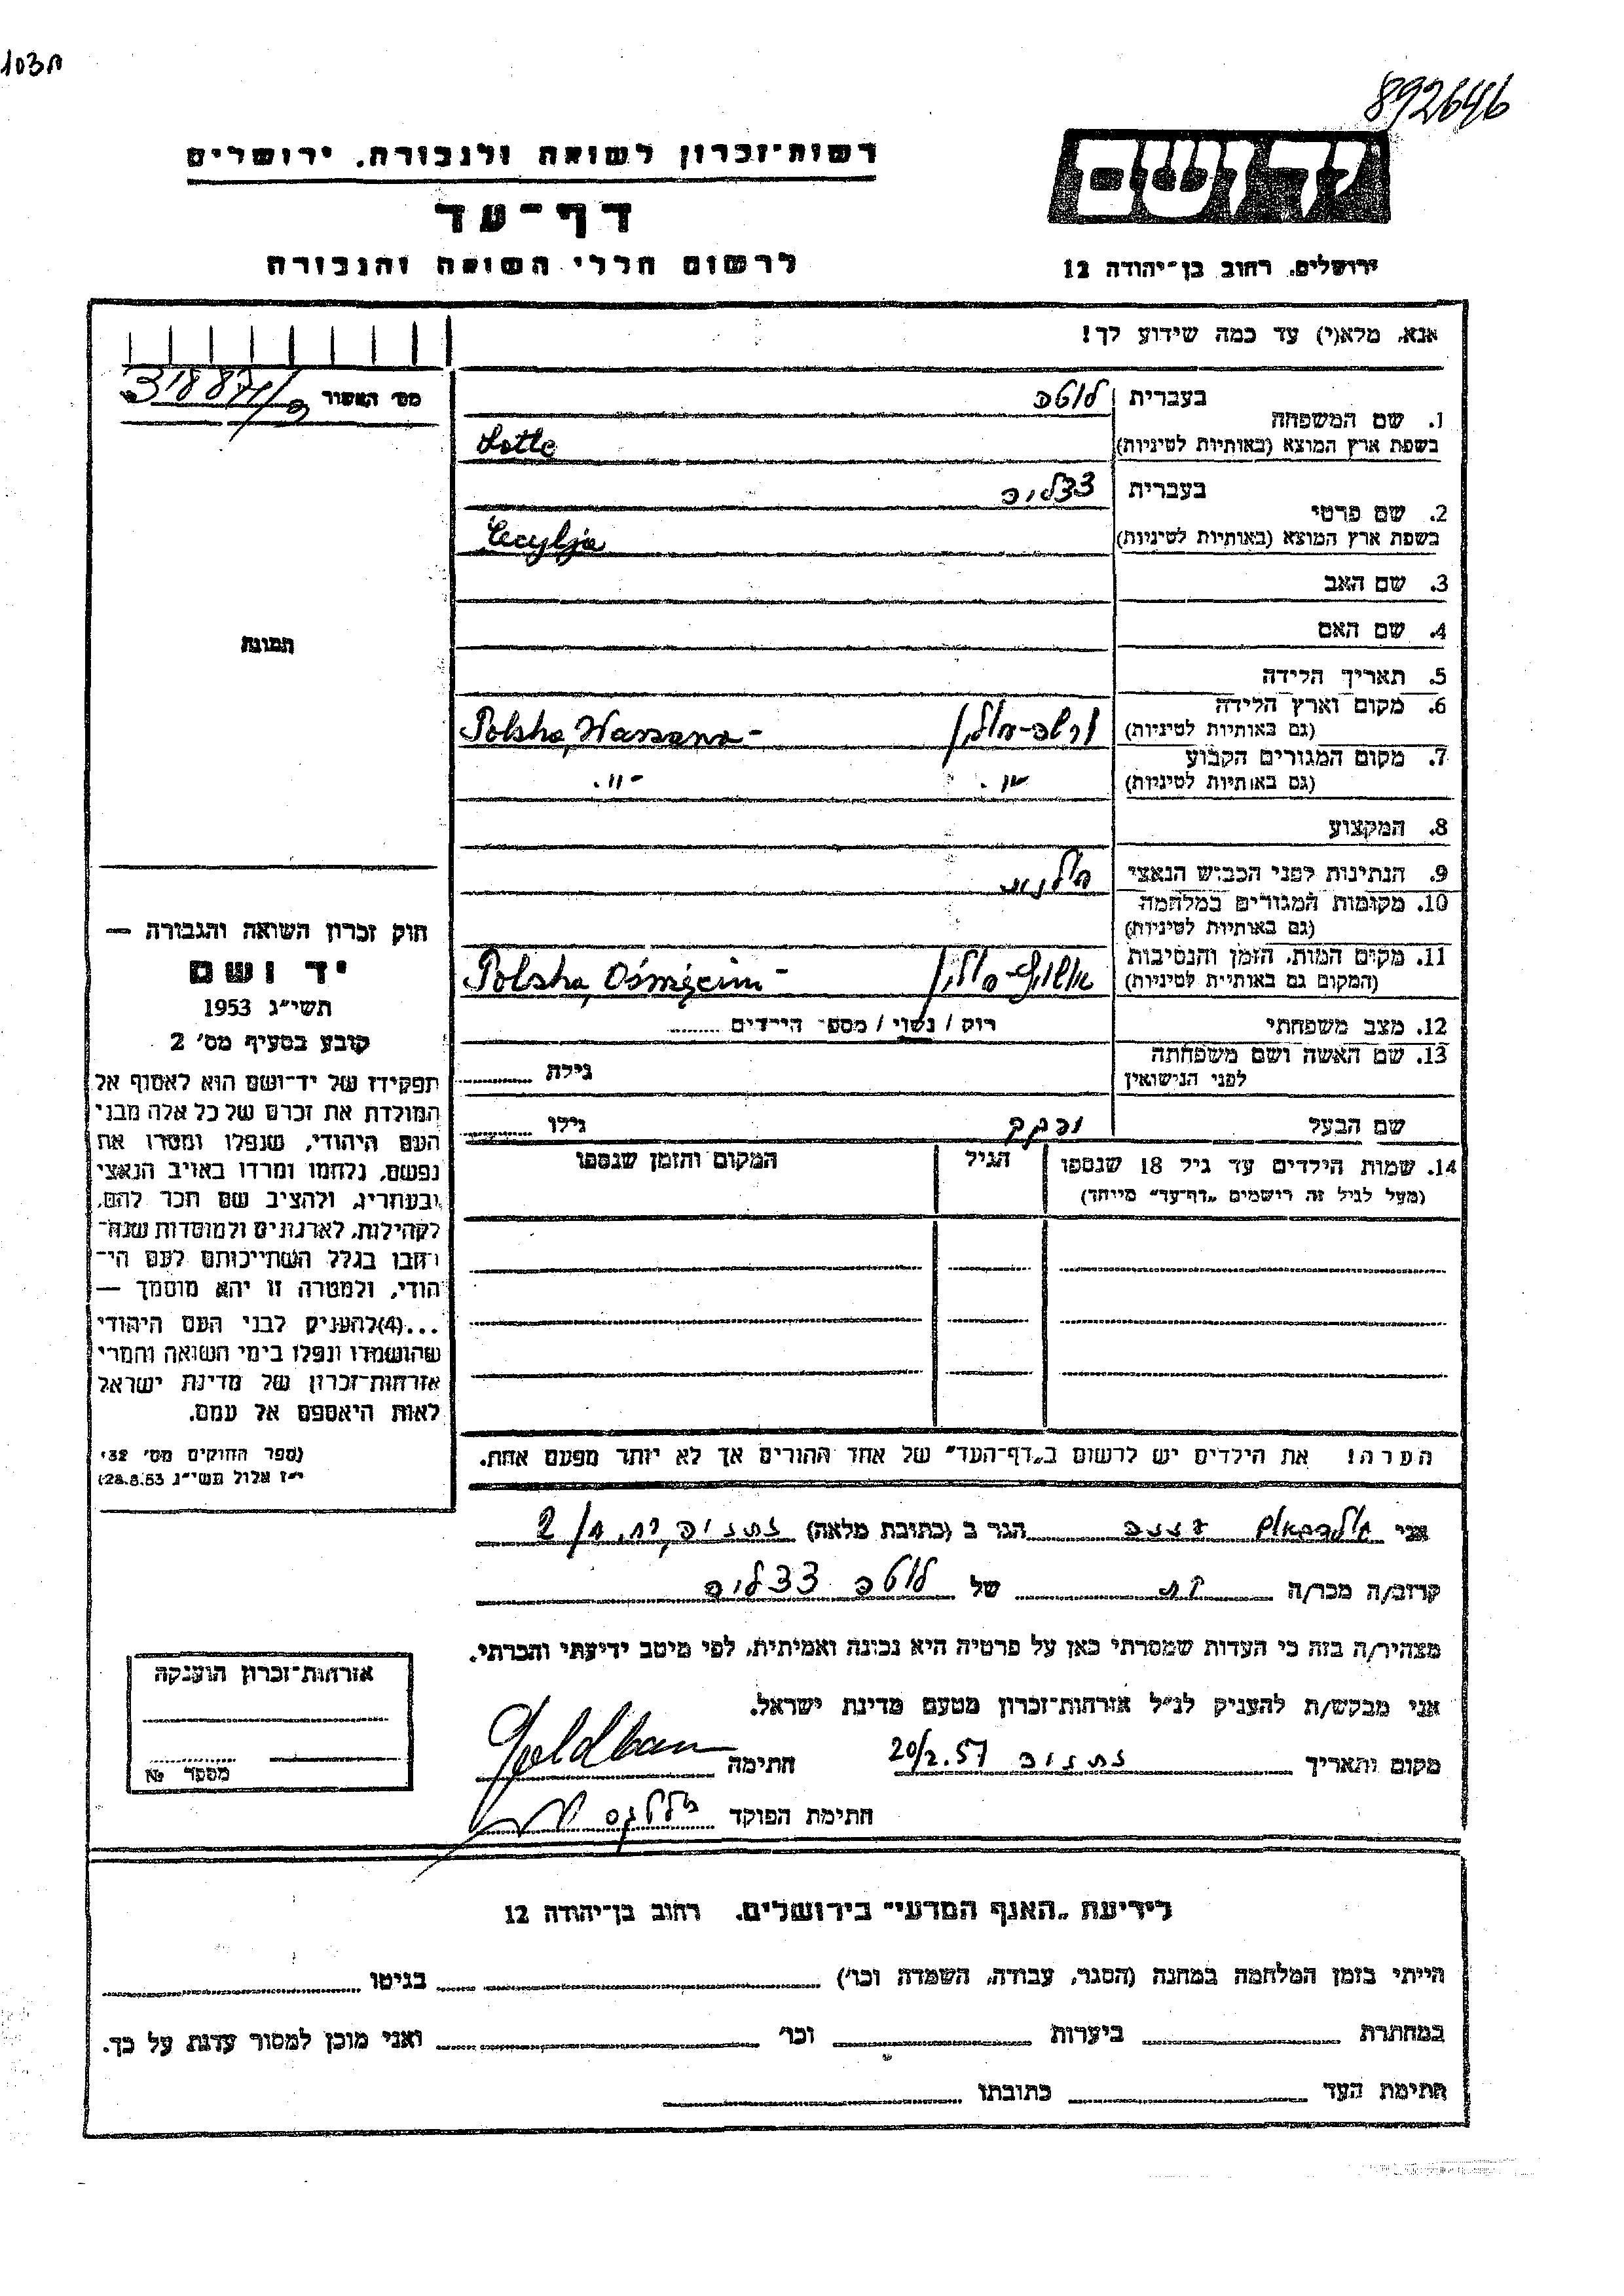 892646
רשות־זכרון לשואה ולגבורה. ירושלים
יד ושם
דף־עד
לרשום חללי השואה והגבורה
ירושלים. רחוב בן־יהודה 12
אנא, מלא(י) עד כמה שידוע לך!
מס׳ האסור
1. שם המשפחה
בעברית לוטה
בשפת ארץ המוצא (באותיות לטיניות) Lotte
2. שם פרטי
בעברית צצליה
בשפת ארץ המוצא (באותיות לטיניות) Cecylja
3. שם האב
4. שם האם
תמונה
5. תאריך הלידה
6. מקום וארץ הלידה
(גם באותיות לטיניות) ורשה-פולין Polsha, Warszawa-
7. מקום המגורים הקבוע
(גם באותיות לטיניות) -״- -״-
8. המקצוע
9. הנתינות לפני הכבוש הנאצי פולנית
10. מקומות המגורים במלחמה
(גם באותיות לטיניות)
11. מקום המות, הזמן והנסיבות
(המקום גם באותיות לטיניות) אושויץ-פולין Polsha, Oświęcim-
12. מצב משפחתי רוק / נשוי / מספר הילדים
13. שם האשה ושם משפחתה
לפני הנישואין גילה
שם הבעל גילו
14. שמות הילדים עד גיל 18 שנספו הגיל המקום והזמן שנספו
(מעל לגיל זה רישמים „דף־עד״ מייחד)
חוק זכרון השואה והגבורה —
יד ושם
תשי״ג 1953
קובע בסעיף מס׳ 2
תפקידו של יד־ושם הוא לאסוף אל
המולדת את זכרם של כל אלה מבני
העם היהודי, שנפלו ומסרו את
נפשם, נלחמו ומרדו באויב הנאצי
ובעוזריו, ולהציב שם וזכר להם,
לקהילות, לארגונים ולמוסדות שנח־
רבו בגלל השתייכותם לעם הי־
הודי, ולמטרה זו יהא מוסמך —
...(4)להעניק לבני העם היהודי
שהושמדו ונפלו בימי השואה והמרי
אזרחות־זכרון של מדינת ישראל
לאות היאספם אל עמם.
(ספר החוקים מס׳ 132
י״ז אלול תשי״ג 28.8.53)
הערה! את הילדים יש לרשום ב„דף־העד״ של אחד ההורים אך לא יותר מפעם אחת.
אני הגר ב (כתובת מלאה) נתניה
קרוב/ה מכר/ה של לוטה צצליה
מצהיר/ה בזה כי העדות שמסרתי כאן על פרטיה היא נכונה ואמיתית, לפי מיטב ידיעתי והכרתי.
אני מבקש/ת להעניק לנ״ל אזרחות־זכרון מטעם מדינת ישראל.
מקום ותאריך נתניה 20/2.57 חתימה
חתימת הפוקד
אזרחות־זכרון הוענקה
מספר №
לידיעת „האגף המדעי״ בירושלים. רחוב בן־יהודה 12
הייתי בזמן המלחמה במחנה (הסגר, עבודה, השמדה וכו׳) בגיטו
במחתרת ביערות וכו׳ ואני מוכן למסור עדות על כך.
חתימת העד כתובתו